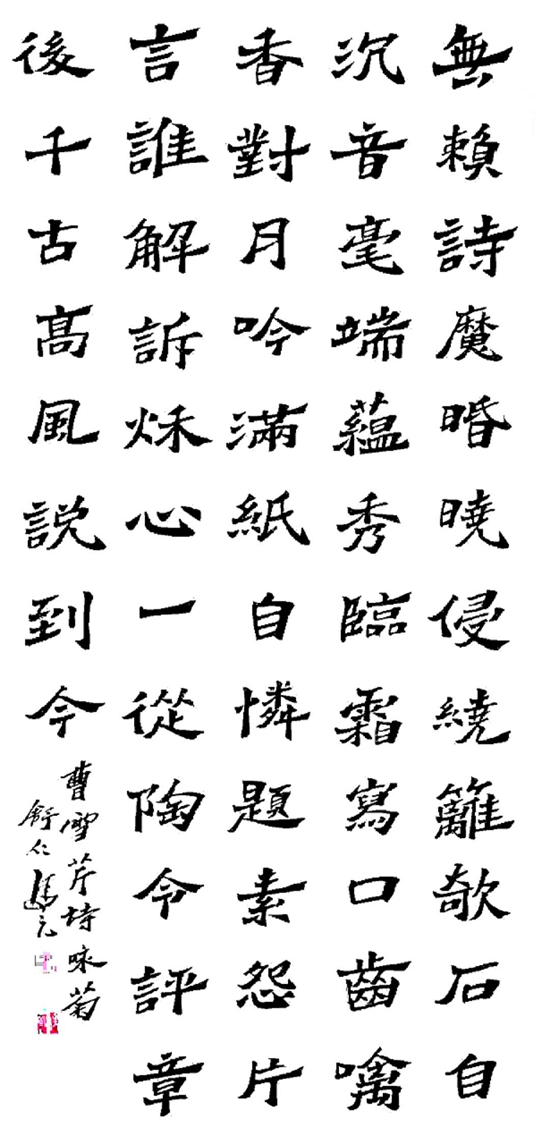 無賴詩魔昏曉侵繞籬欹石自
沉音毫端蘊秀臨霜寫口齒噙
香對月吟滿紙自憐題素怨片
言誰解訴秌心一從陶令評章
後千古髙風説到今
曹雪芹詩咏菊
舒仁